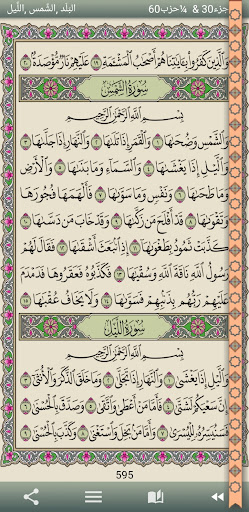 البَلَد ,الشَّمس ,اللَّيل جزء30 & ¼حزب60
وَٱلَّذِينَ كَفَرُوا۟ بِـَٔايَٰتِنَا هُمْ أَصْحَٰبُ ٱلْمَشْـَٔمَةِ ١٩ عَلَيْهِمْ نَارٌ مُّؤْصَدَةٌۢ ٢٠
سُورَةُ الشَّمْسِ
بِسْمِ ٱللَّهِ ٱلرَّحْمَٰنِ ٱلرَّحِيمِ
وَٱلشَّمْسِ وَضُحَىٰهَا ١ وَٱلْقَمَرِ إِذَا تَلَىٰهَا ٢ وَٱلنَّهَارِ إِذَا جَلَّىٰهَا ٣
وَٱلَّيْلِ إِذَا يَغْشَىٰهَا ٤ وَٱلسَّمَآءِ وَمَا بَنَىٰهَا ٥ وَٱلْأَرْضِ
وَمَا طَحَىٰهَا ٦ وَنَفْسٍ وَمَا سَوَّىٰهَا ٧ فَأَلْهَمَهَا فُجُورَهَا
وَتَقْوَىٰهَا ٨ قَدْ أَفْلَحَ مَن زَكَّىٰهَا ٩ وَقَدْ خَابَ مَن دَسَّىٰهَا ١٠
كَذَّبَتْ ثَمُودُ بِطَغْوَىٰهَآ ١١ إِذِ ٱنۢبَعَثَ أَشْقَىٰهَا ١٢ فَقَالَ لَهُمْ
رَسُولُ ٱللَّهِ نَاقَةَ ٱللَّهِ وَسُقْيَٰهَا ١٣ فَكَذَّبُوهُ فَعَقَرُوهَا فَدَمْدَمَ
عَلَيْهِمْ رَبُّهُم بِذَنۢبِهِمْ فَسَوَّىٰهَا ١٤ وَلَا يَخَافُ عُقْبَٰهَا ١٥
سُورَةُ اللَّيْلِ
بِسْمِ ٱللَّهِ ٱلرَّحْمَٰنِ ٱلرَّحِيمِ
وَٱلَّيْلِ إِذَا يَغْشَىٰ ١ وَٱلنَّهَارِ إِذَا تَجَلَّىٰ ٢ وَمَا خَلَقَ ٱلذَّكَرَ وَٱلْأُنثَىٰٓ ٣
إِنَّ سَعْيَكُمْ لَشَتَّىٰ ٤ فَأَمَّا مَنْ أَعْطَىٰ وَٱتَّقَىٰ ٥ وَصَدَّقَ بِٱلْحُسْنَىٰ ٦
فَسَنُيَسِّرُهُۥ لِلْيُسْرَىٰ ٧ وَأَمَّا مَنۢ بَخِلَ وَٱسْتَغْنَىٰ ٨ وَكَذَّبَ بِٱلْحُسْنَىٰ ٩
595